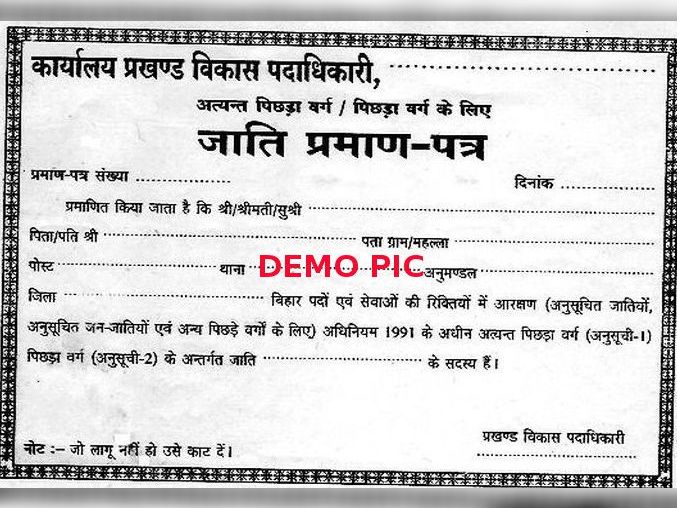 कार्यालय प्रखण्ड विकास पदाधिकारी, ........................
अत्यन्त पिछड़ा वर्ग / पिछड़ा वर्ग के लिए
जाति प्रमाण-पत्र
प्रमाण-पत्र संख्या ................ दिनांक ................
प्रमाणित किया जाता है कि श्री/श्रीमती/सुश्री ................................
पिता/पति श्री ................................ पता ग्राम/महल्ला ................................
पोस्ट ................ थाना ................ अनुमण्डल ................
DEMO PIC
जिला ................................ बिहार पदों एवं सेवाओं की रिक्तियों में आरक्षण (अनुसूचित जातियों,
अनुसूचित जन-जातियों एवं अन्य पिछड़े वर्गो के लिए) अधिनियम 1991 के अधीन अत्यन्त पिछड़ा वर्ग (अनुसूची-1)
पिछड़ा वर्ग (अनुसूची-2) के अन्तर्गत जाति ................................ के सदस्य हैं।
प्रखण्ड विकास पदाधिकारी
नोट :– जो लागू नहीं हो उसे काट दें। ................................